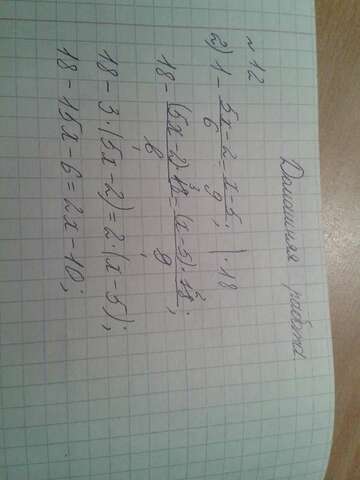 Домашняя работа
№ 12
2) 1 - \frac{5x-2}{6} = \frac{x-5}{9}; | · 18
18 - \frac{(5x-2)·18^3}{6} = \frac{(x-5)·18^2}{9};
18 - 3·(5x-2) = 2·(x-5);
18 - 15x - 6 = 2x - 10;